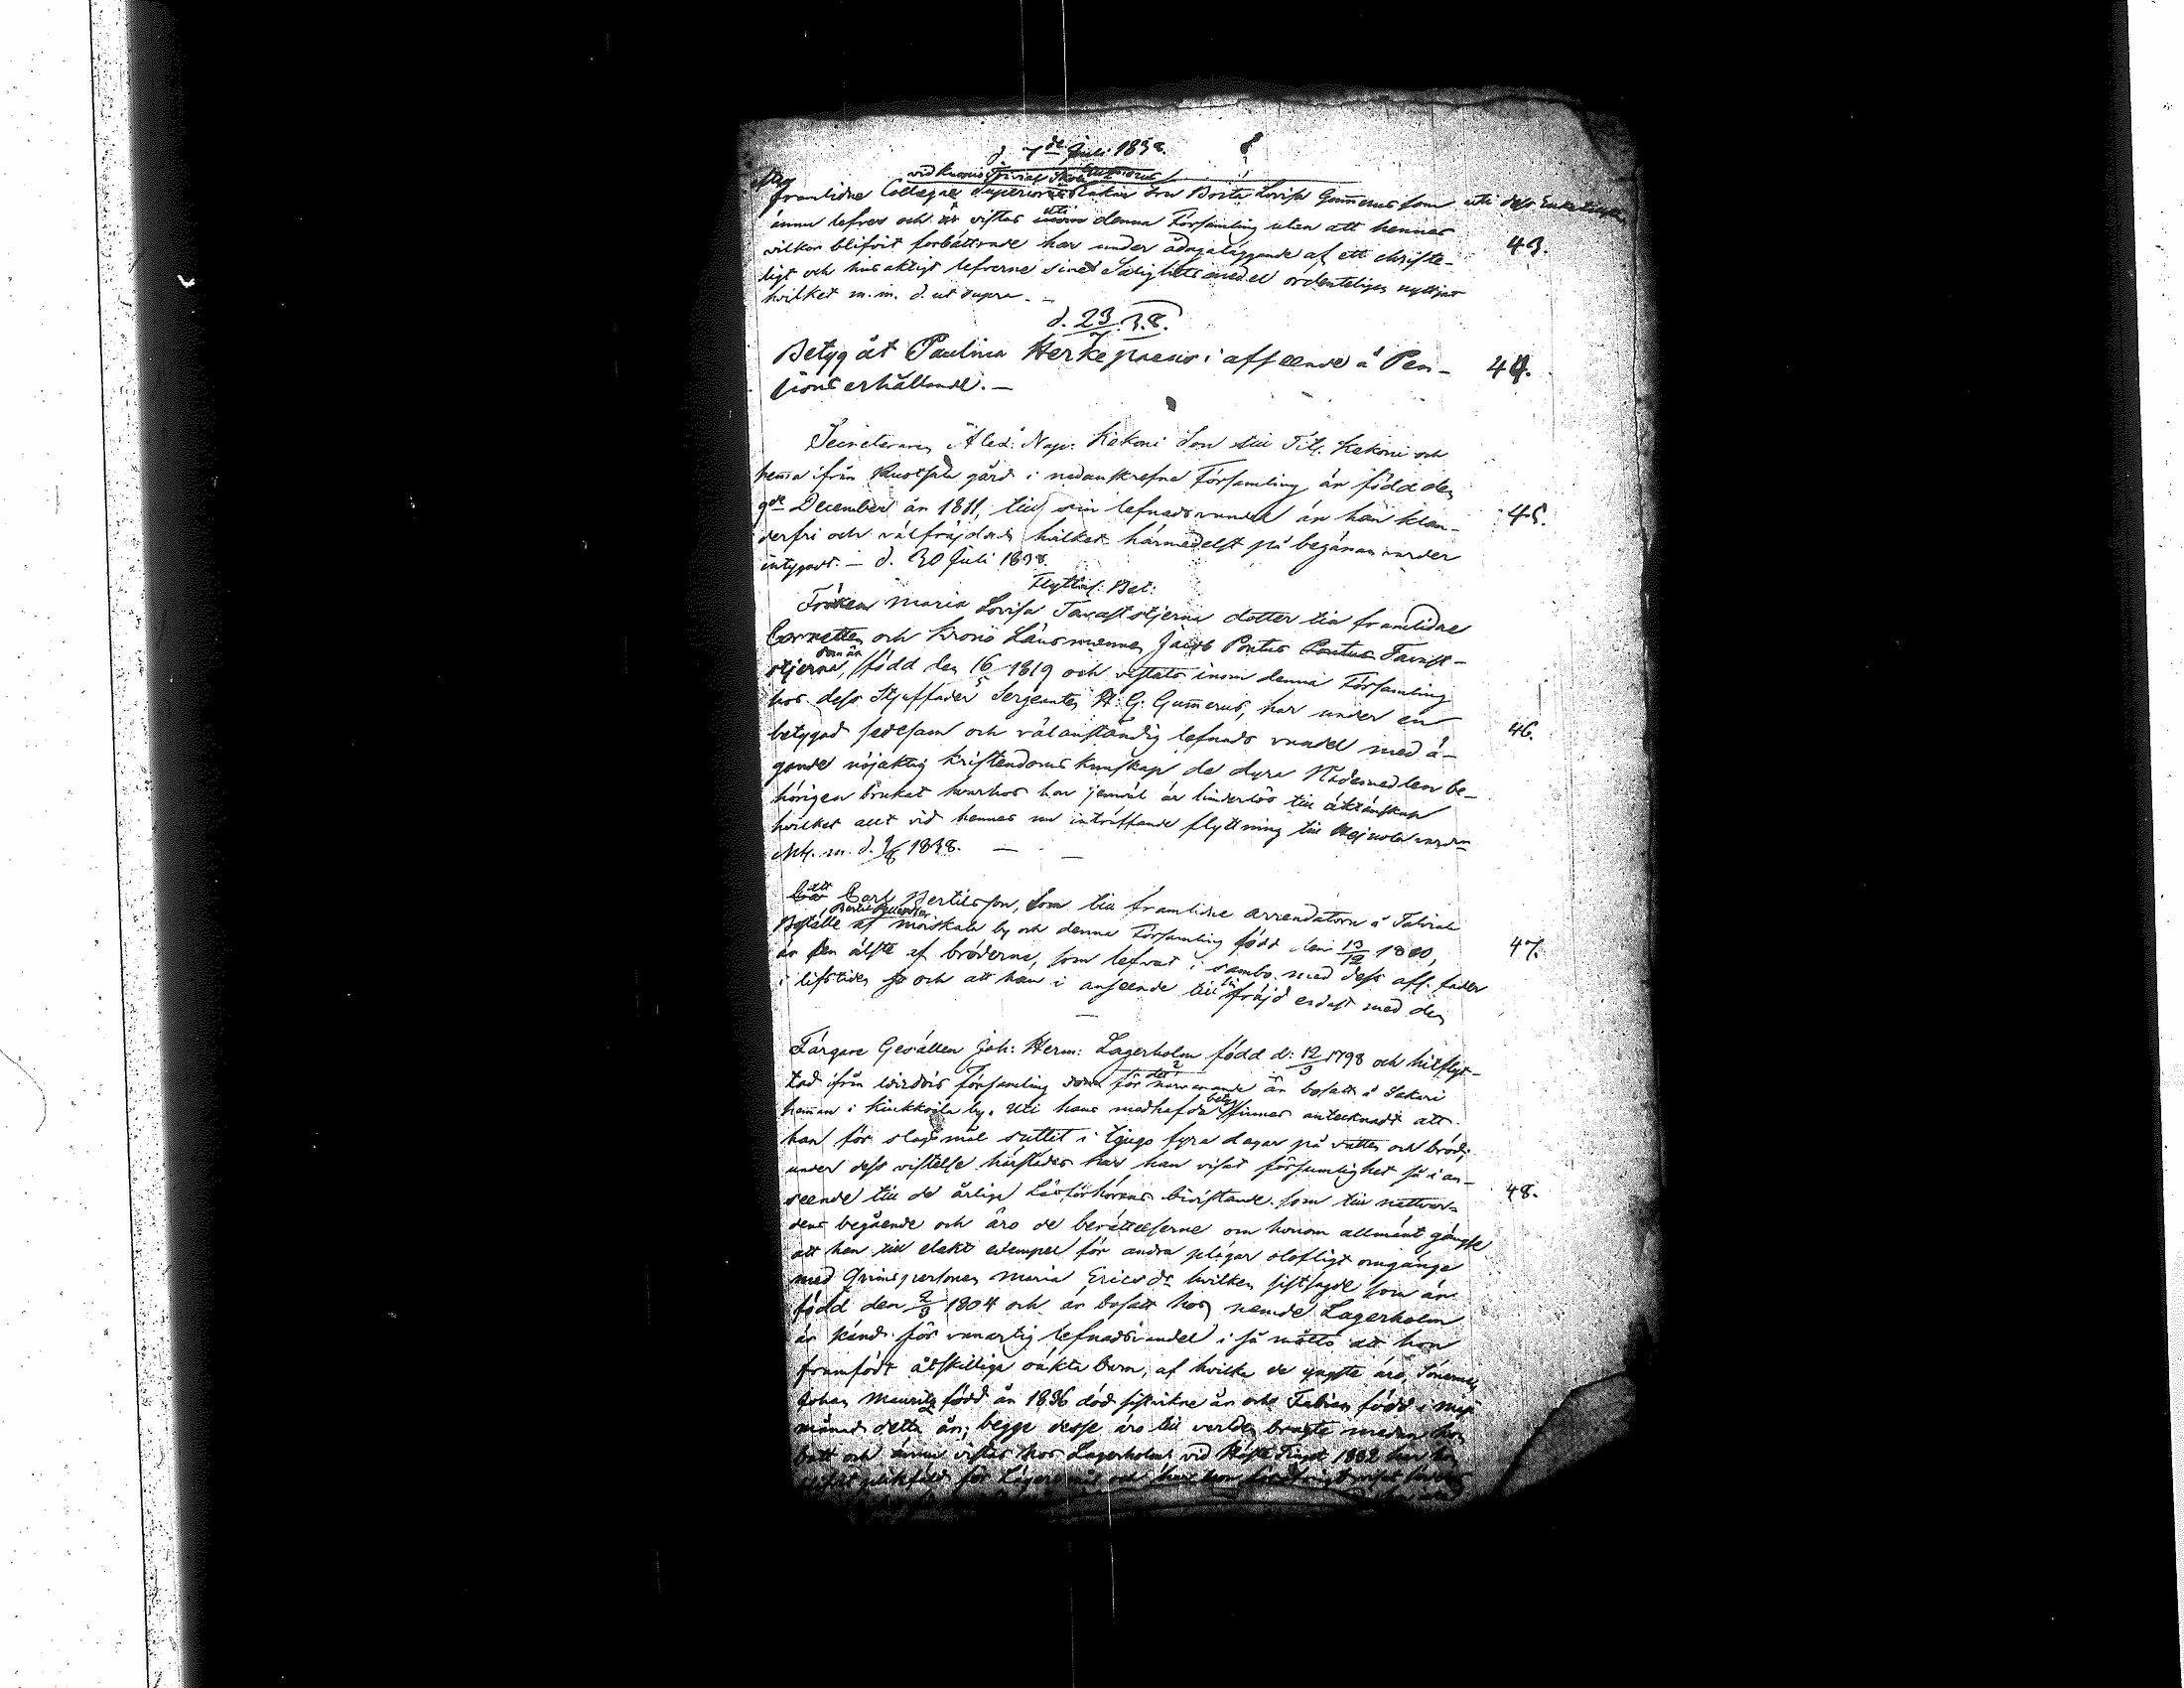 d. 7de Juli 1838.
vid Kuopio Trivial Skola Gummerus
framlidne Collegae Superioris Enkan Fru Brita Lovisa Gummerus som uti dess Enkestånd
ännu lefver och vistas uti denna Församling utan att hennes
vilkor blifvit förbättrade har under ådagaläggande af ett christe-
ligt och sin aktigt lefverne sine Salighets medel ordenteligen nyttjat
hvilket m.m. d. ut supra. -
43.
d. 23/7 38.
Betyg åt Paulina Herkepaeus i afseende å Pen-
sions erhållande. -
44.
Secreteraren Alex: Nap: Kekoni Son till Tit. Kekoni och
hemma ifrån gård i nedanskrefne Församling är född den
9de December år 1811, till sin lefnadsvandel är han klan-
derfri och välfräjdad hvilket härmedelst på begäran varder
intygadt. - d. 30 Juli 1838.
45.
Flyttns: Bet:
Fröken Maria Lovisa Tavaststjerna dotter till framlidne
Cornetten och Krono Länsmannen Jacob Pontus Pontus Tavast-
stjerna, som är född den 16/5 1819 och vistats inom denna Församling
hos dess Styffader Sergeanten H: G: Gummerus, har under en
betygad sedesam och välanständig lefnads vandel med ä-
gande nöjaktig Kristendoms kunskap de dyra Nådemedlen be-
hörigen brukat hvarhos hon jemväl är hinderlös till äktenskap
hvilket allt vid hennes nu inträffande flyttning till Heinola varder
Att. m. d. 1/8 1838. - -
46.
att Carl Bertilsson, Son till framlidne arrendatorn å Tabinala
Boställe af Moiskala by och denna Församling född den 13/12 1800,
är den älste af bröderne, som lefvat i sambo med dess afl. fader
i lifstiden och att han i anseende till sin fräjd endast med den
47.
Färgare Gesällen Joh: Herm: Lagerholm född d: 12/3 1798 och hitflyt-
tad ifrån Wirdois församling för det närvarande är bosatt å Sakari
hemman i Kiukkoila by. Uti hans medhafda betyg finnes antecknadt att
han för slagsmål suttit i tjugo fyra dagar på vatten och bröd;
under dess vistelse härstädes har han visat försumlighet så i an-
seende till de årliga Läsförhörens bivistande som till nattvar-
dens begående och äro de berättelserne om honom allmänt gängse
att han till elakt exempel för andra plägar olofligt omgänge
med Qvinspersonen Maria Ericsdr hvilken sistsagde som är
född den 2/3 1804 och är bosatt hos nemde Lagerholm
är känd för vanartig lefnadsvandel i så måtto att hon
framfödt åtskilliga oäkta barn, af hvilka de yngste äro, Sönerne
Johan Mauritz född år 1836 död sistvikne år och Fabian född i Maji
månad detta år; begge desse äro till verlden bragte medan hon
bott och ännu vistas hos Lagerholm: vid Höste Tinget 1832 har hon
blifvit pliktfäld för Lägersmål och
48.